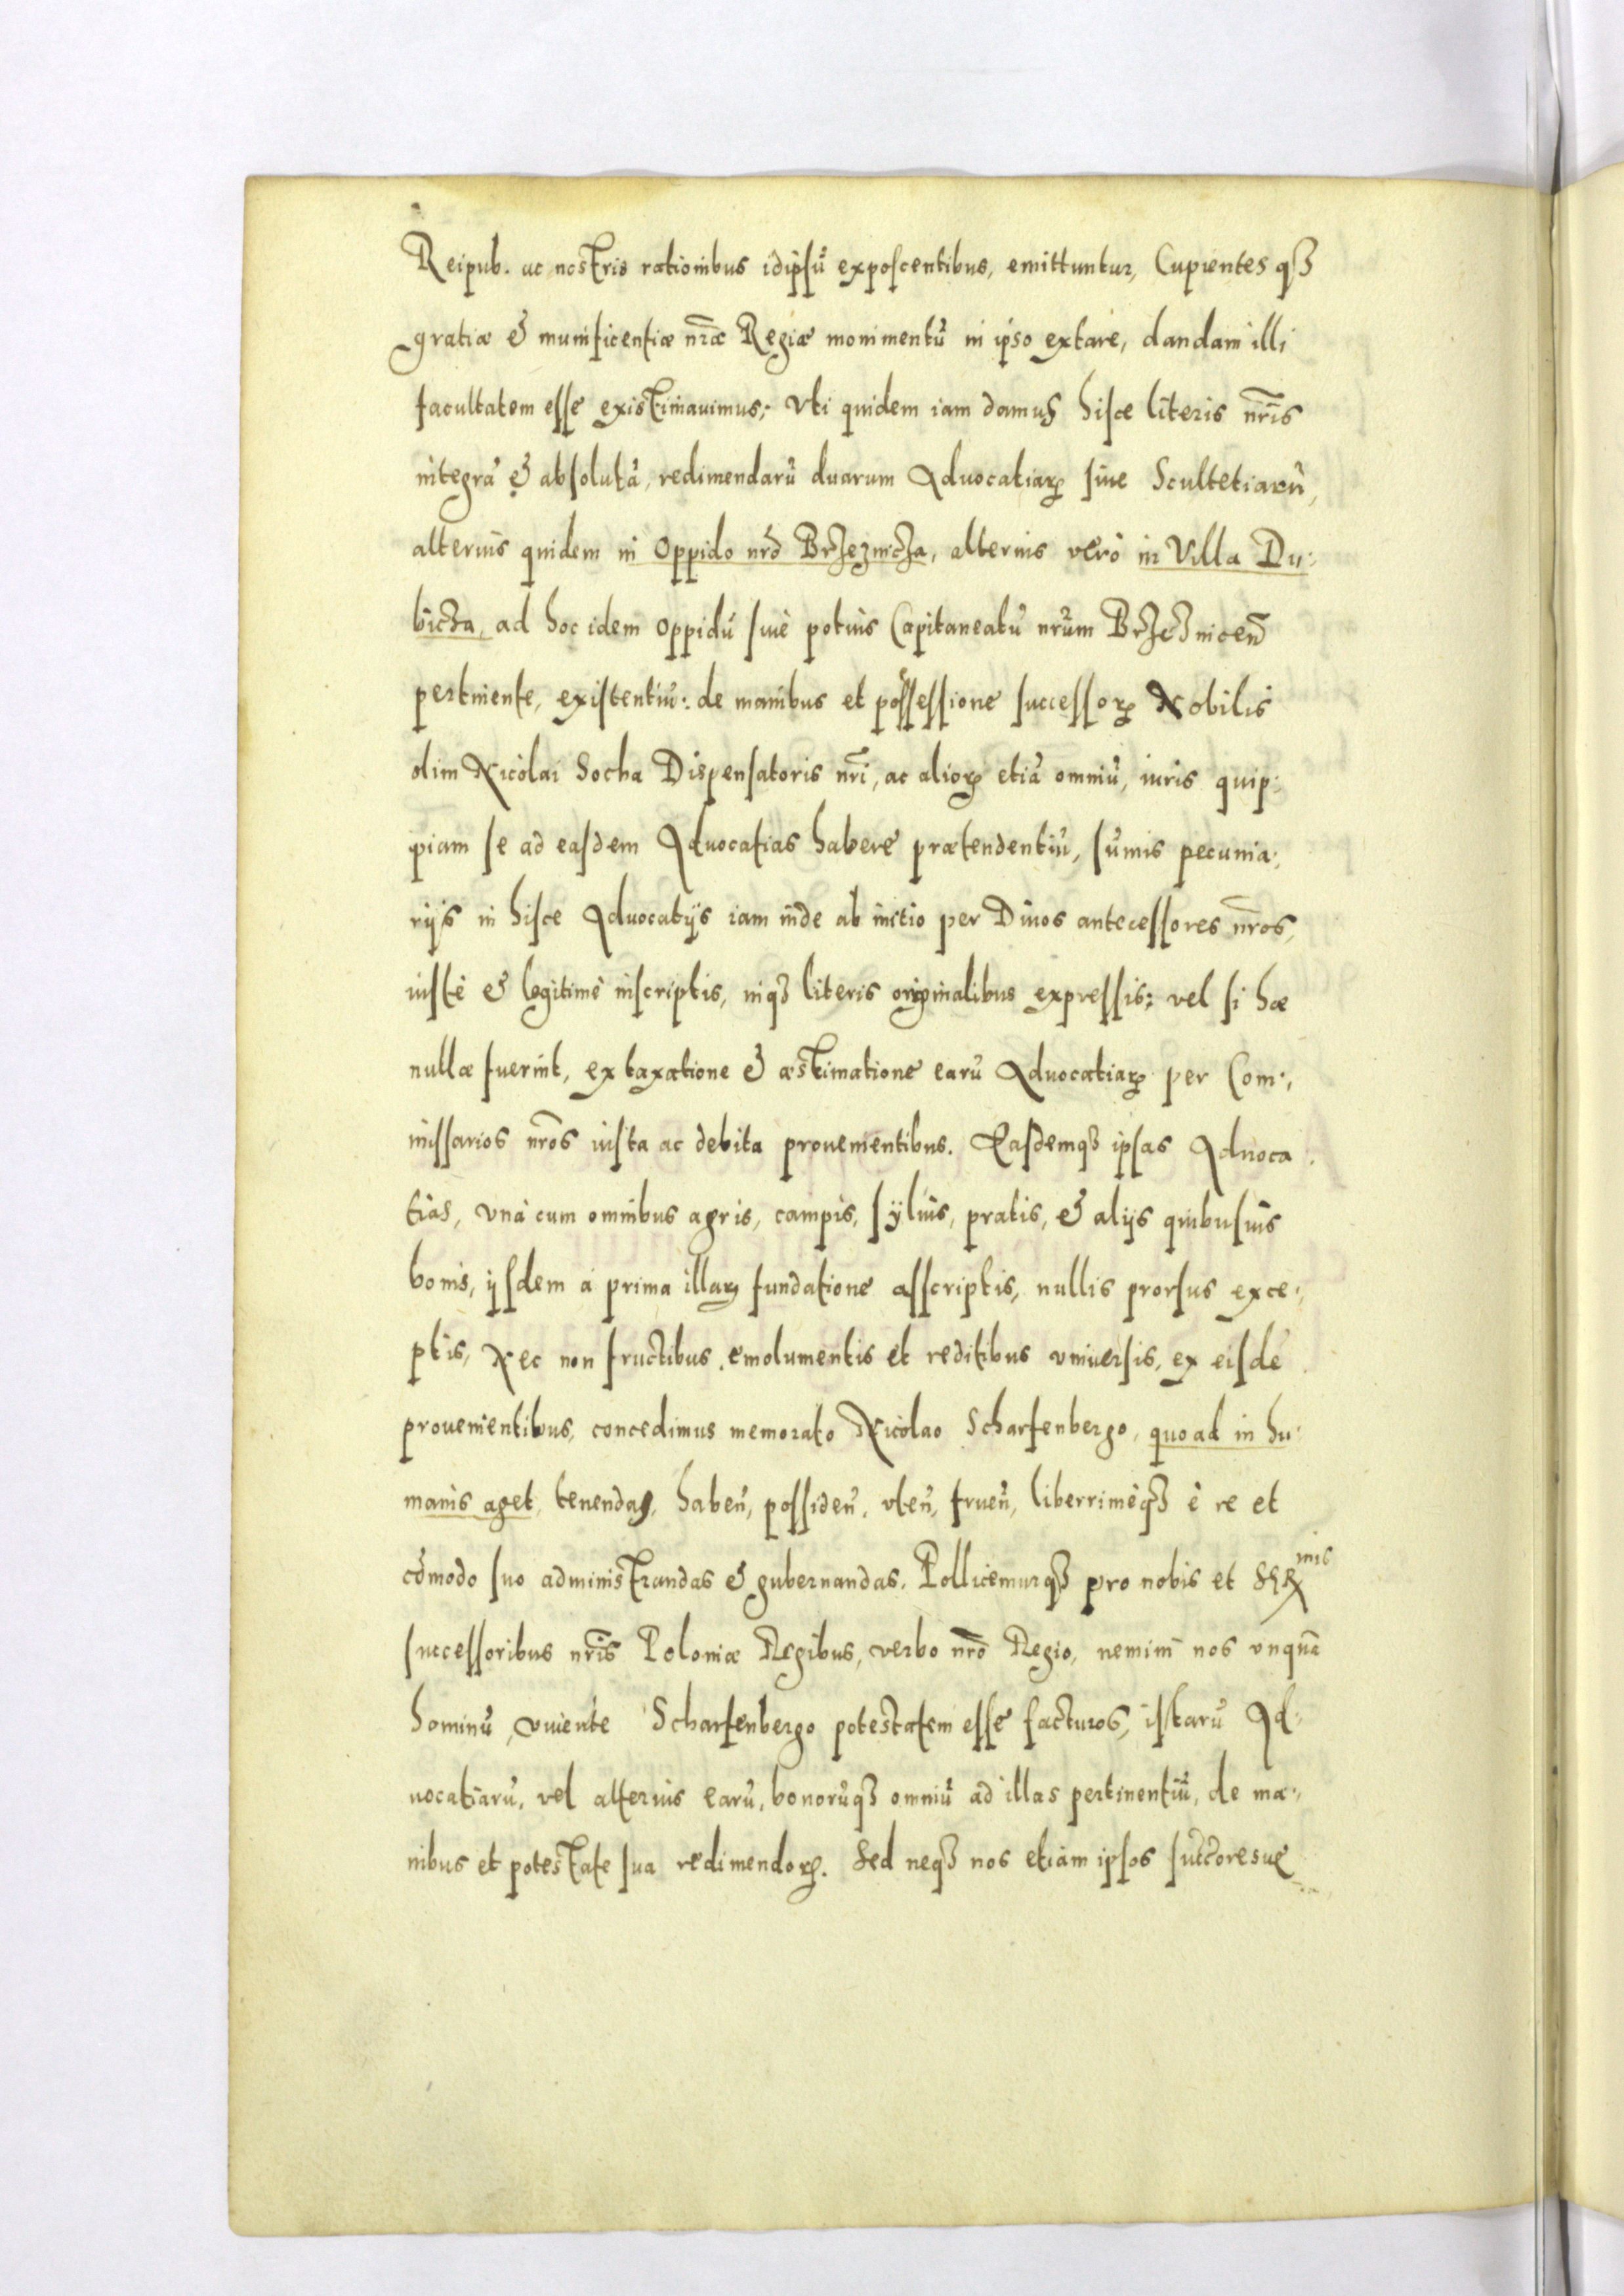 Reipub. ac nostris rationibus idipsũ exposcentibus, emittuntur, Cupientesqꝫ
gratiæ & munificentiæ nr̃æ Regiæ monimentũ in ipso extare, dandam illi
facultatem esse existimauimus: Vti quidem iam damus hisce literis nr̃is
integrã & absolutã, redimendarũ duarum Aduocatiaꝝ siue Scultetiarũ,
alterius quidem in Oppido nr̃o Brzeznicza, alterius verò in Villa Du:
bicza, ad hoc idem Oppidũ siue potius Capitaneatũ nr̃um Brzezniceñ
pertinente, existentiũ: de manibus et possessione successoꝝ Nobilis
olim Nicolai Socha Dispensatoris nr̃i, ac alioꝝ etiã omniũ, iuris quip:
piam se ad easdem Aduocatias habere prætendentiũ, sum̃is pecunia:
rijs in hisce Aduocatijs iam inde ab initio per Diuos antecessores nr̃os,
iustè & legitimè inscriptis, inqꝫ literis originalibus expressis: vel si hæ
nullæ fuerint, ex taxatione & æstimatione earũ Aduocatiaꝝ per Com:
missarios nr̃os iusta ac debita prouenientibus. Easdemqꝫ ipsas Aduoca:
tias, vnà cum omnibus agris, campis, syluis, pratis, & alijs quibusuis
bonis, ijsdem à prima illaꝝ fundatione asscriptis, nullis prorsus exce:
ptis, Nec non fructibus, emolumentis et reditibus vniuersis, ex eisdẽ
prouenientibus, concedimus memorato Nicolao Scharfenbergo, quoad in hu:
manis aget, tenendas, habeñ, possideñ, vteñ, frueñ, liberrimèqꝫ è re et
com̃odo suo administrandas & gubernandas. Pollicemurqꝫ pro nobis et Ser<sup>mis</sup>
successoribus nr̃is Poloniæ Regibus, verbo nr̃o Regio, nemini nos vnquã
hominũ, viuente Scharfenbergo potestatem esse facturos, istarũ Ad:
uocatiarũ, vel alterius earũ, bonorũqꝫ omniũ ad illas pertinentiũ, de ma:
nibus et potestate sua redimendoꝝ. Sed neqꝫ nos etiam ipsos succ̃oresue